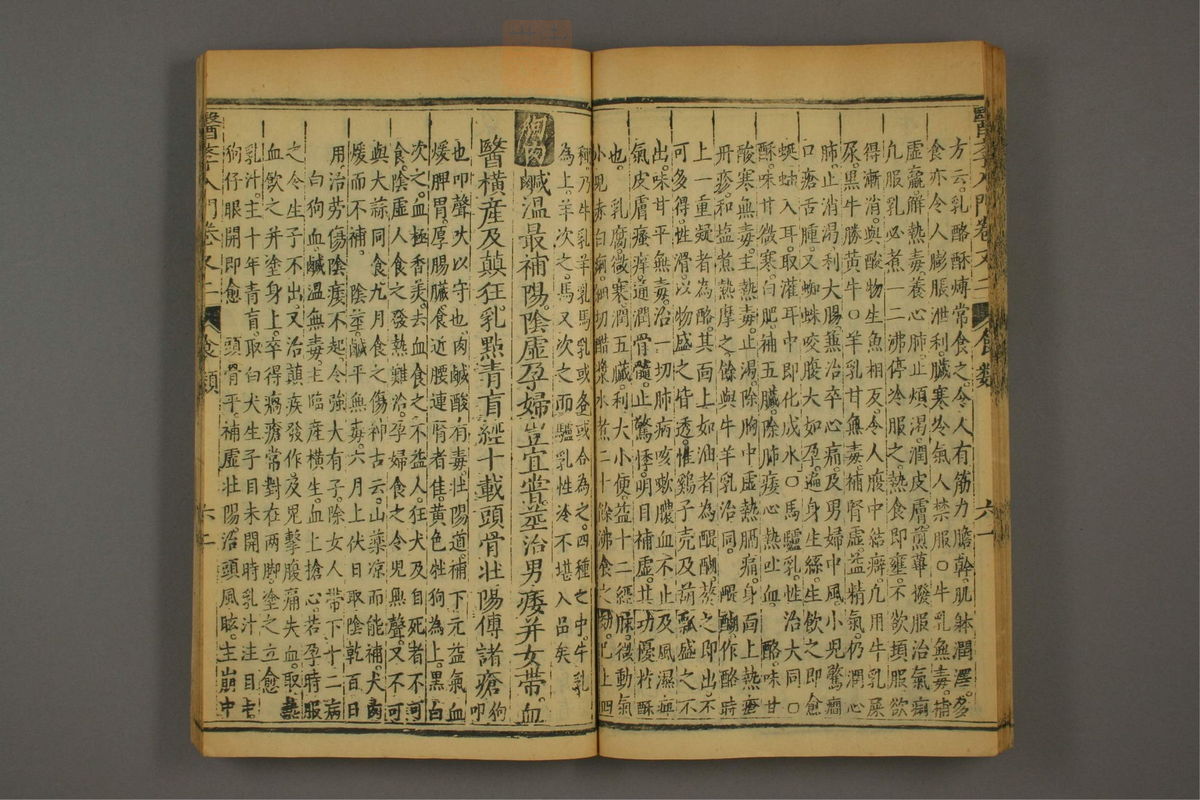 醫學入門卷又二 食類 六一
方云乳酪酥煉常食之令人有筋力膽幹肌躰潤澤多
食亦令人膨脹泄利臟寒冷氣人禁服○牛乳無毒補
虛羸解熱毒養心肺止煩渴潤皮膚煎蓽撥服治氣痢
凡服乳必煮一二沸停冷服之熱食即壅不欲頓服欲
得漸消與酸物生魚相反令人腹中結癖凡用牛乳屎
尿黑牛勝黃牛○羊乳甘無毒補腎虛益精氣仍潤心
肺止消渴利大腸兼治卒心痛及男婦中風小兒驚癇
口瘡舌腫又蜘蛛咬腹大如孕遍身生絲生飲之即愈
蚰蜒入耳取灌耳中即化成水○馬驢乳性治大同○
酥味甘微寒白肥補五臟除肺痿心熱吐血 酪味甘
酸寒無毒主熱毒止渴除胸中虛熱膈痛身面上熱瘡
丹疹和塩煮熱摩之餘與牛羊乳治同 醍醐作酪時
上一重凝者為酪其面上如油者為醍醐熬之即出不
可多得性滑以物盛之皆透惟鷄子壳及葫瓢盛之不
出味甘平無毒治一切肺病咳嗽膿血不止及風濕痺
氣皮膚瘙痒通潤骨髓止驚悸明目補虛其功優於酥
也 乳腐微寒潤五臟利大小便益十二經脉微動氣
小兒赤白痢細切醋漿水煮二十餘沸食之
種乃牛乳羊乳馬乳或各或合為之四種之中牛乳
為上羊次之馬又次之而驢乳性冷不堪入品矣
鹹溫最補陽陰虛孕婦豈宜嘗莖治男痿并女帶血
醫橫産及顛狂乳點青盲經十載頭骨壯陽傅諸瘡狗叩
也叩聲吠以守也肉鹹酸有毒壯陽道補下元益氣血
煖脾胃厚腸臟食近腰連腎者佳黃色牡狗為上黑白
次之血極香羙去血食之不益人狂犬及自死者不可
食陰虛人食之發熱難治孕婦食之令兒無聲又不可
與大蒜同食九月食之傷神古云山藥凉而能補犬肉
煖而不補 陰莖鹹平無毒六月上伏日取陰乾百日
用治勞傷陰痿不起令強大有子除女人帶下十二病
白狗血鹹溫無毒主臨産橫生血上搶心若孕時服
之令生子不出又治顛疾發作及鬼擊腹痛失血取熱
血飲之并塗身上卒得癘瘡常對在兩脚塗之立愈
乳汁主十年青盲取白犬生子目未開時乳汁注目
狗仔眼開即愈 頭骨平補虛壯陽治頭風眩主崩中
醫學入門卷又二 食類 六二